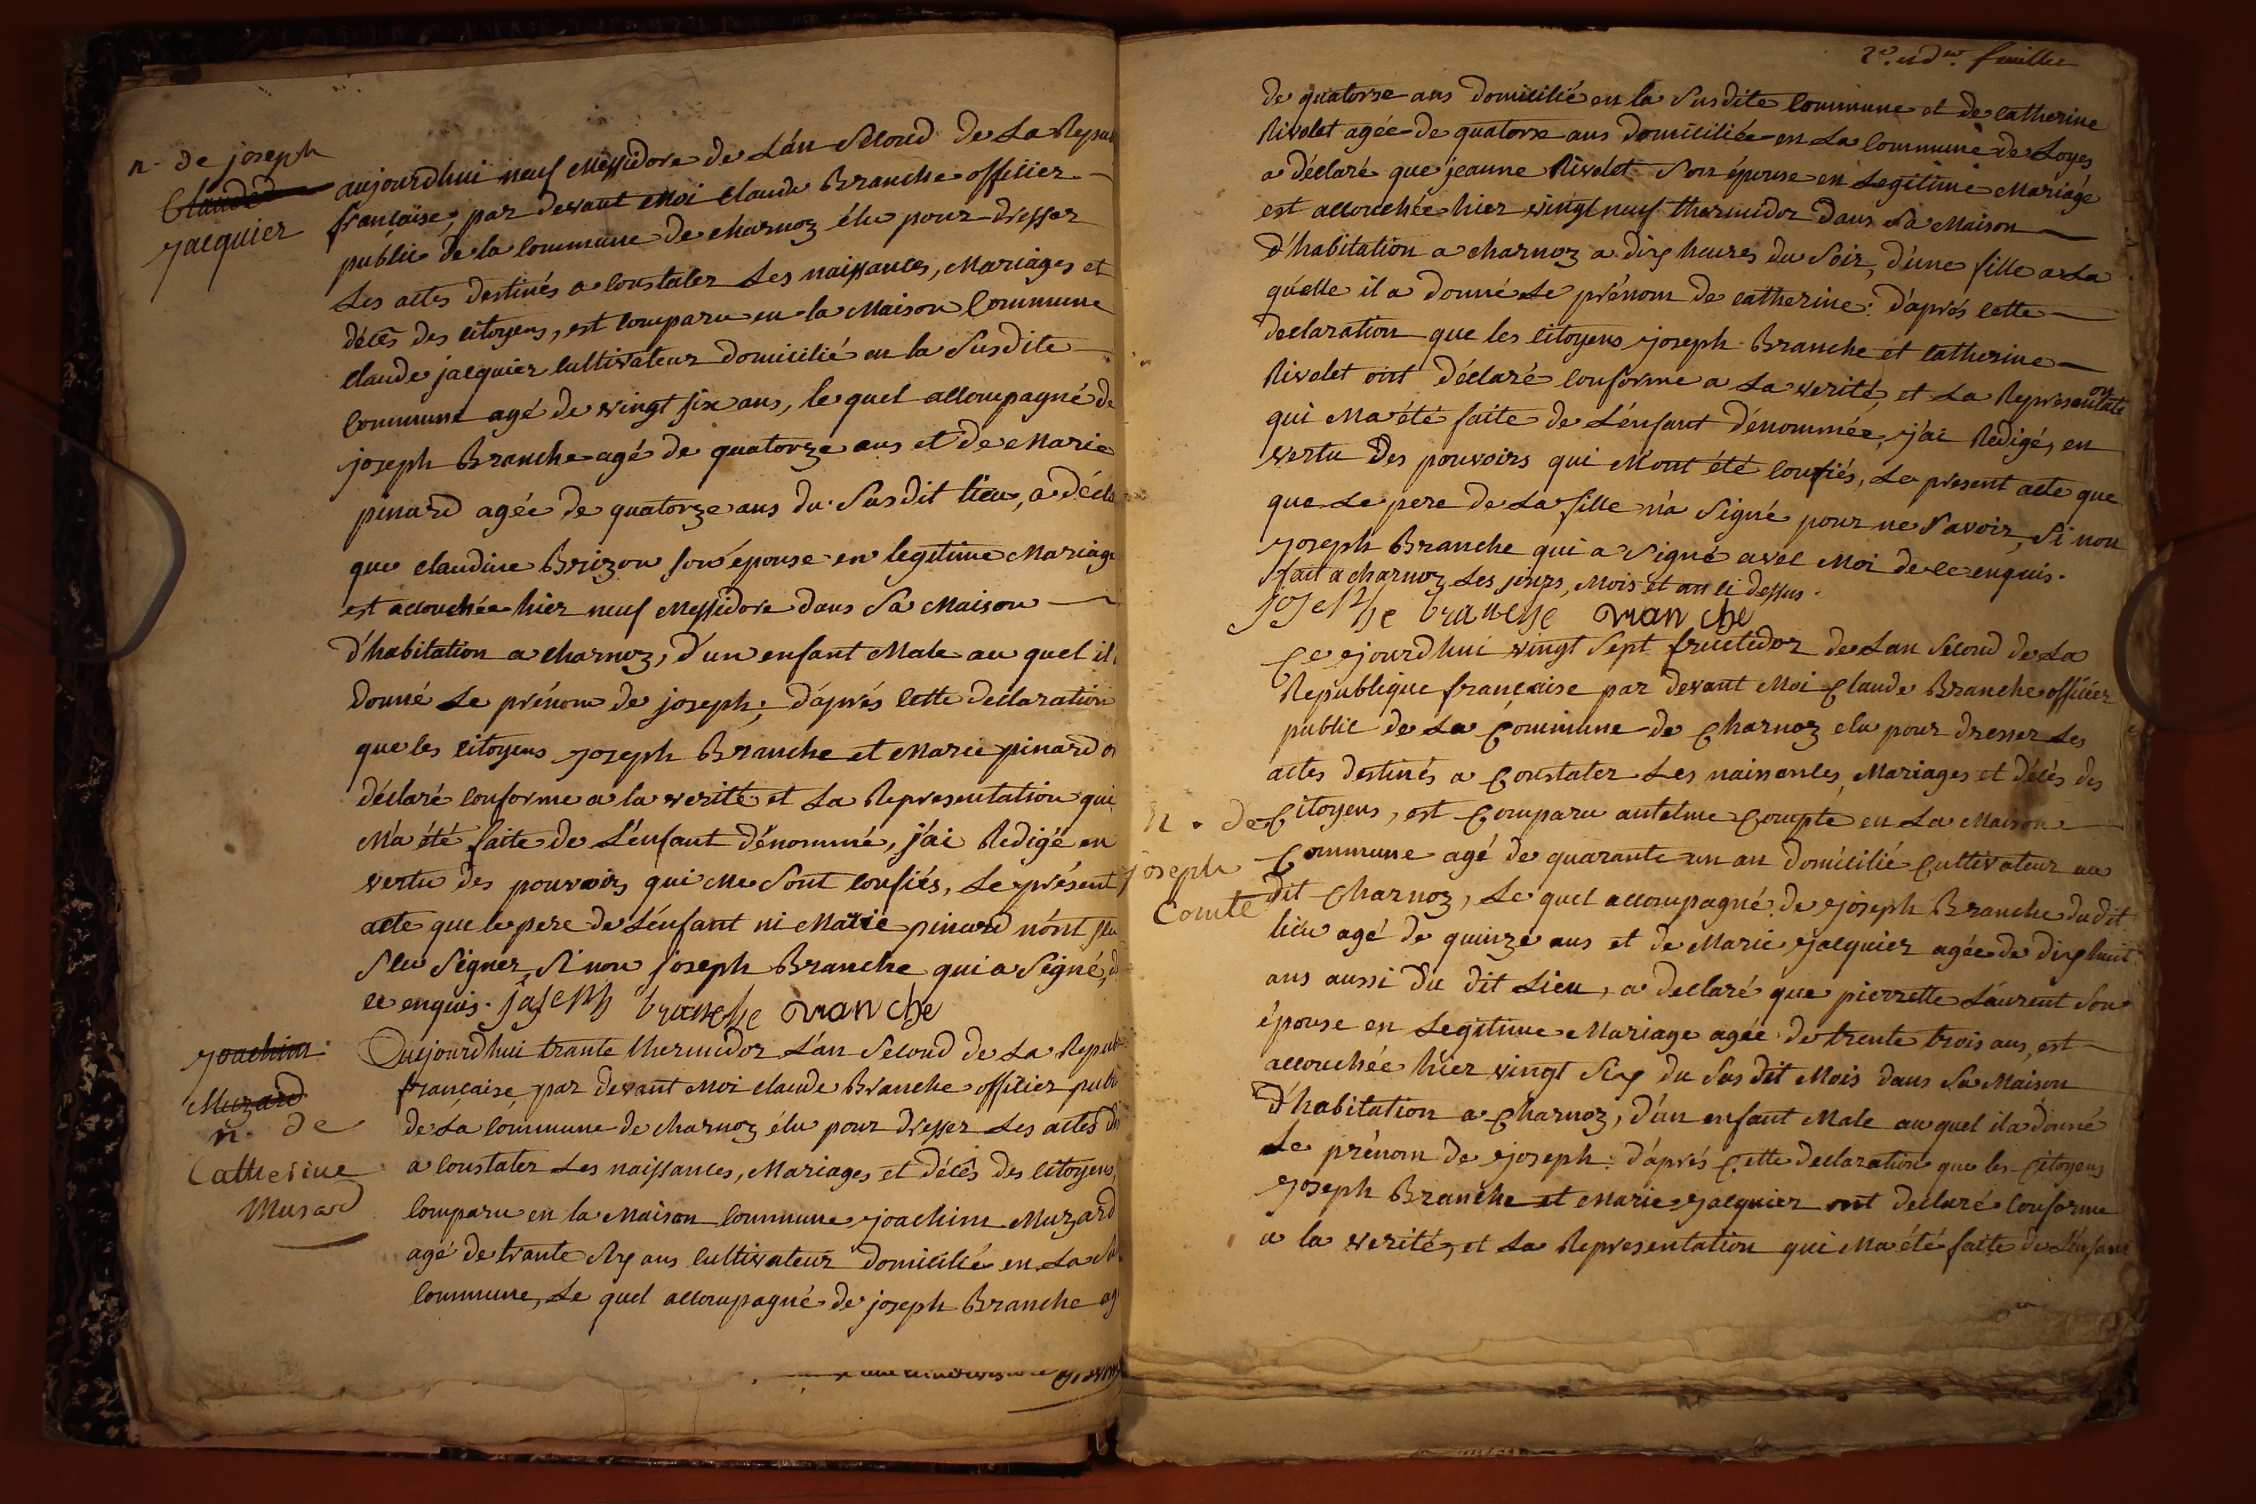 n. de joseph
Claude
jacquier
aujourdhui neuf Messidore de L'an Second de La Repub
française, par devant Moi Claude Branche officier
public de la Commune de charnoz élu pour dresser
Les actes destinés a Constater Les naissances, Mariages et
décés des Citoyens, est Comparu en la Maison Commune
Claude jacquier Cultivateur domicilié en la Susdite
Commune agé de vingt six ans, le quel accompagné de
joseph Branche agé de quatorze ans et de Marie
pinard agée de quatorze ans du Susdit lieu, a décla
que Claudine Brizon son épouse en legitime Mariage
est accouchée hier neuf Messidore dans Sa Maison
d'habitation a charnoz, d'un enfant Male au quel il
donné Le prénom de joseph; d'aprés Cette declaration
que les Citoyens joseph Branche et Marie pinard on
déclaré Conforme a la verité et La Representation qui
M'a été faite de L'enfant dénommé, j'ai Redigé en
vertu des pouvoirs qui Me Sont Confiés, Le présent
acte que le pere de L'enfant ni Marie pinard n'ont pu
Signer, Si non joseph Branche qui a Signé, d
ce enquis. joseph branche Branche
joachim
Muzard
n. de
Catherine
Musard
Aujourdhui trante thermidor L'an Second de La Repub
française par devant Moi Claude Branche officier publi
de La Commune de charnoz élu pour dresser Les actes d
a Constater Les naissances, Mariages et décés des Citoyens,
Comparu en la Maison Commune joachim Muzard
agé de trante Six ans Cultivateur domicilié en La Su
Commune, Le quel accompagné de joseph Branche ag
2e. et der. feuillet
de quatorze ans domicilié en la Susdite Commune et de Catherine
Rivolet agée de quatorze ans domiciliée en La Commune de Loyes
a déclaré que jeanne Rivolet Son épouse en Legitime Mariage
est accouchée hier vingt neuf thermidor dans Sa Maison
d'habitation a charnoz a dix heures du Soir, d'une fille a La
quelle il a donné Le prénom de Catherine: d'aprés Cette
declaration que les Citoyens joseph Branche et Catherine
Rivolet ont déclaré Conforme a La verité, et La Representation
qui M'a été faite de L'enfant dénommée, j'ai Redigé, en
vertu des pouvoirs qui M'ont été Confiés, Le present acte que
que Le pere de La fille n'a Signé pour ne Savoir, Si non
joseph Branche qui a Signé avec Moi de ce enquis.
fait a charnoz Les jours, Mois et an Ci dessus.
josephe branche Branche
Ce jourdhui vingt Sept fructidor de Lan Second de La
Republique française par devant Moi Claude Branche officier
public de La Commune de Charnoz elu pour dresser Les
actes destinés a Constater Les naissances, Mariages et décès des
Citoyens, est Comparu antelme Compte en La Maison
n. de
joseph
Comte
Commune agé de quarante un an domicilié Cultivateur au
dit Charnoz, Le quel accompagné de joseph Branche du dit
lieu agé de quinze ans et de Marie jacquier agée de dix huit
ans aussi du dit Lieu, a declaré que pierrette Laurent Son
épouse en Legitime Mariage agée de trente trois ans, est
accouchée hier vingt Six du Sus dit Mois dans Sa Maison
d'habitation a Charnoz, d'un enfant Male au quel il a donné
Le prénom de joseph: d'aprés Cette declaration que les Citoyens
joseph Branche et Marie jacquier ont declaré Conforme
a la verité, et La Representation qui M'a été faite de L'enfant